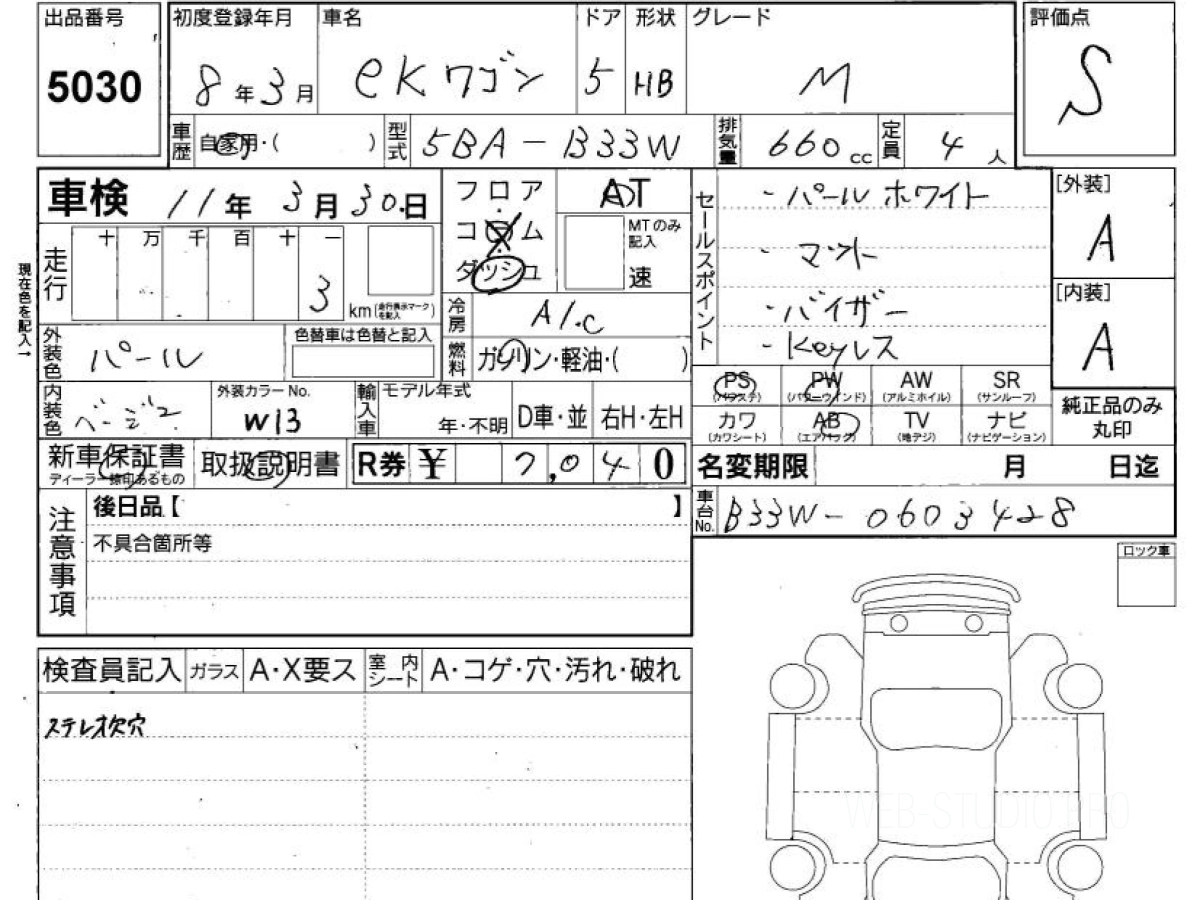 出品番号
5030
初度登録年月
8年3月
車名
eKワゴン
ドア
5
形状
HB
グレード
M
評価点
S
車歴
自家用・( )
型式
5BA-B33W
排気量
660cc
定員
4人
車検 11年3月30日
現在色を記入→
走行
十 万 千 百 十 一
3
km(走行表示マークを記入)
フロア
コラム
ダッシュ
AT
MTのみ記入
速
冷房
A/C
燃料
ガソリン・軽油・( )
セールスポイント
・パールホワイト
・マット
・バイザー
・Keyレス
[外装]
A
[内装]
A
外装色
パール
色替車は色替と記入
内装色
ベージュ
外装カラーNo.
W13
輸入車
モデル年式
年・不明
D車・並
右H・左H
PS
(パワステ)
PW
(パワーウインド)
AW
(アルミホイル)
SR
(サンルーフ)
カワ
(カワシート)
AB
(エアバック)
TV
(地デジ)
ナビ
(ナビゲーション)
純正品のみ
丸印
新車保証書
ディーラー捺印あるもの
取扱説明書
R券 ¥ 7,040
名変期限 月 日迄
車台No.
B33W-0603428
注意事項
後日品【 】
不具合箇所等
ロック車
検査員記入
ガラス
A・X要ス
室内シート
A・コゲ・穴・汚れ・破れ
ステレオ欠穴
WEB-STUDIO PRO